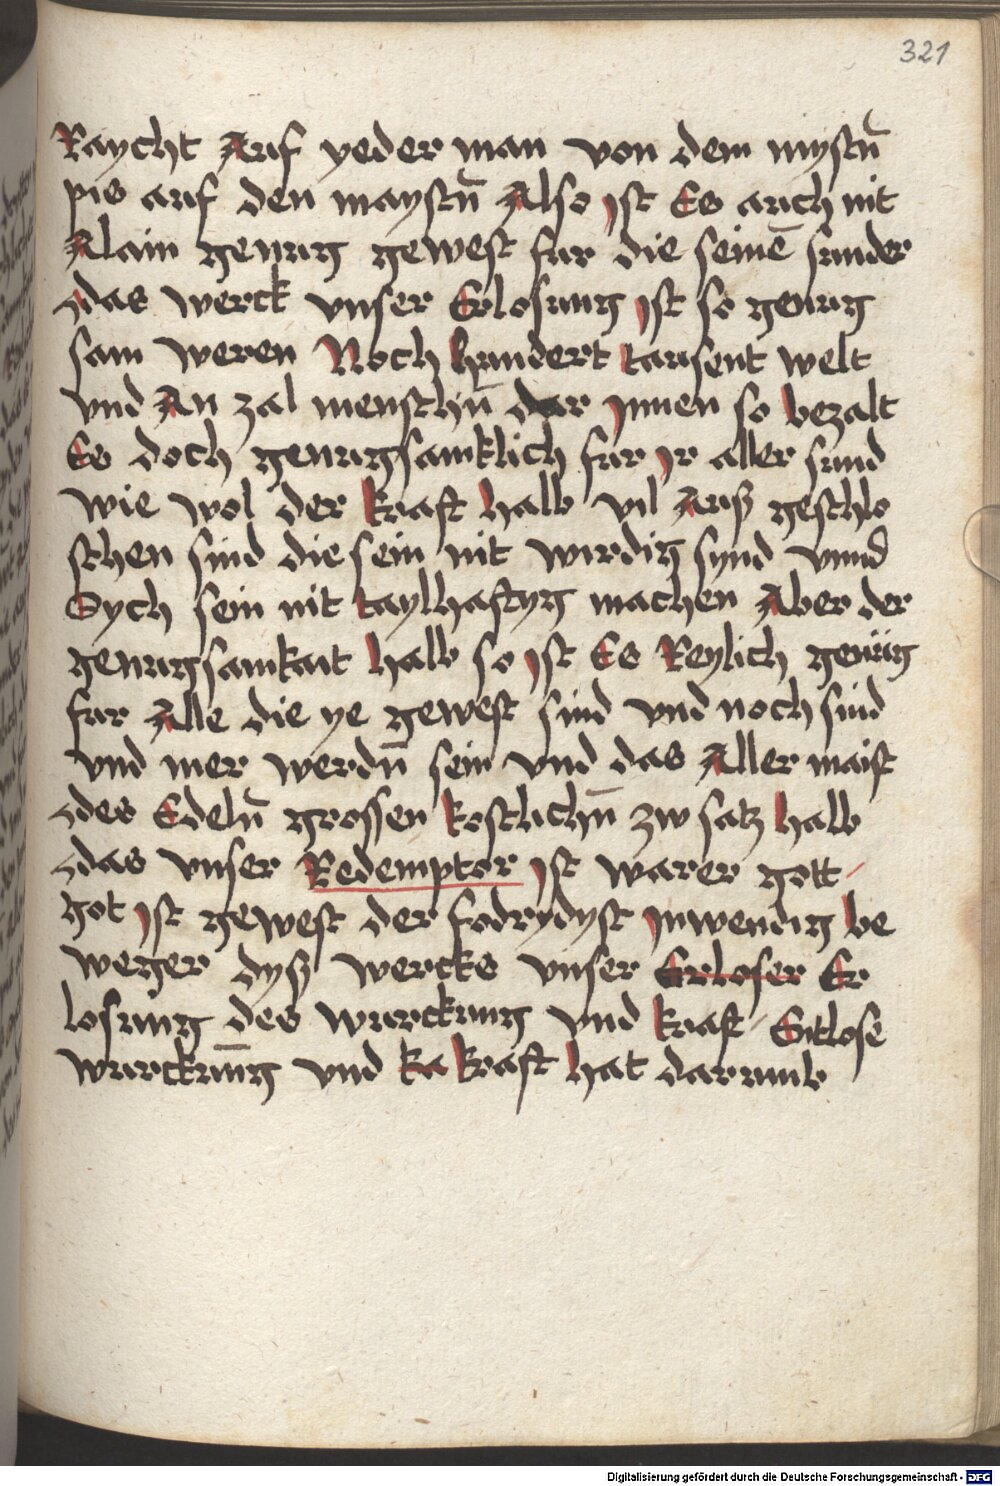 321
Raycht Auf yeder man von dem mystn̄
pis auf den maystn̄ Also ist Es auch nit
Alain genug gewest fur die seinē sunder
das werck vnser Erlosung ist so genug
sam weren Noch hundert tausent welt
vnd An zal menschn̄ dar Innen so bezalt
Es doch genugsamklich fur Ir aller sund
wie wol der kraft halb vil Auß geschlo
schen sind die sein nit wirdig synd vnnd
Sych sein nit taylhaftyg machen Aber der
genugsamkait halb so ist Es Reylich genüg
fur Alle die ye gewest sind vnd noch sind
vnd mer werdn̄ sein vnd das Aller maist
des Edeln̄ grossen kostlichn̄ zw satz halb
das vnser Redemptor ist warer gott
got ist gewest der fodrydyst Inwendig be
weger dyß wercks vnser Erloser Er
losung des wurckung vnd kraft Gitlose
wurckung vnd ka kraft hat darumb
Digitalisierung gefördert durch die Deutsche Forschungsgemeinschaft - DFG